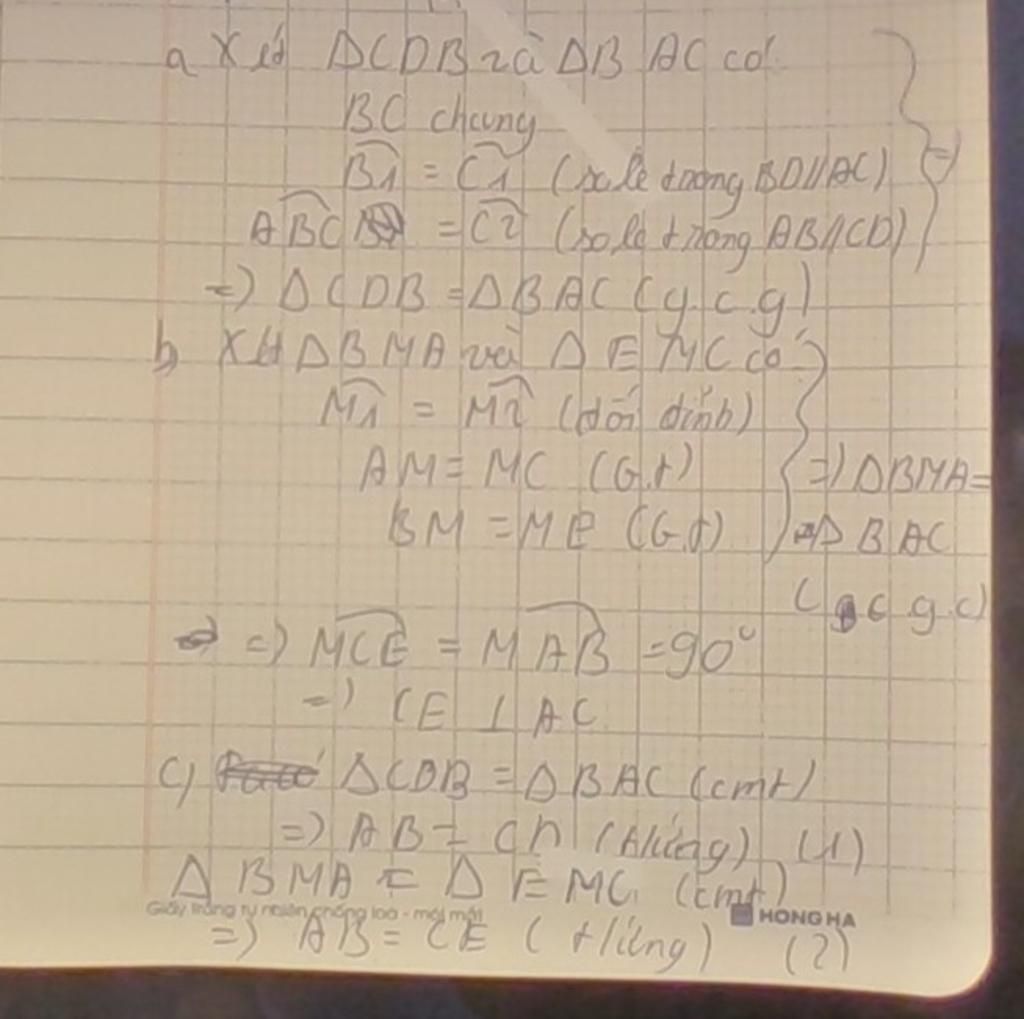 a Xét ΔCDB và ΔBAC có
BC chung
B1 = C1 (so le trong BD//AC) =)
ABC = C2 (so le trong AB//CD)
=) ΔCDB = ΔBAC (g.c.g)
b, Xét ΔBMA và ΔEMC có
M1 = M2 (đối đỉnh)
AM = MC (G.t) =) ΔBMA =
BM = ME (G.t) Δ BAC
(c g.c)
=) MCE = MAB = 90°
=) CE ⊥ AC
c, ΔCDB = ΔBAC (cmt)
=) AB = CD (t/ứng) (1)
Δ BMA = Δ EMC (cmt)
Giấy trắng tự nhiên chống loá - mỏi mắt HONG HA
=) AB = CE (t/ứng) (2)